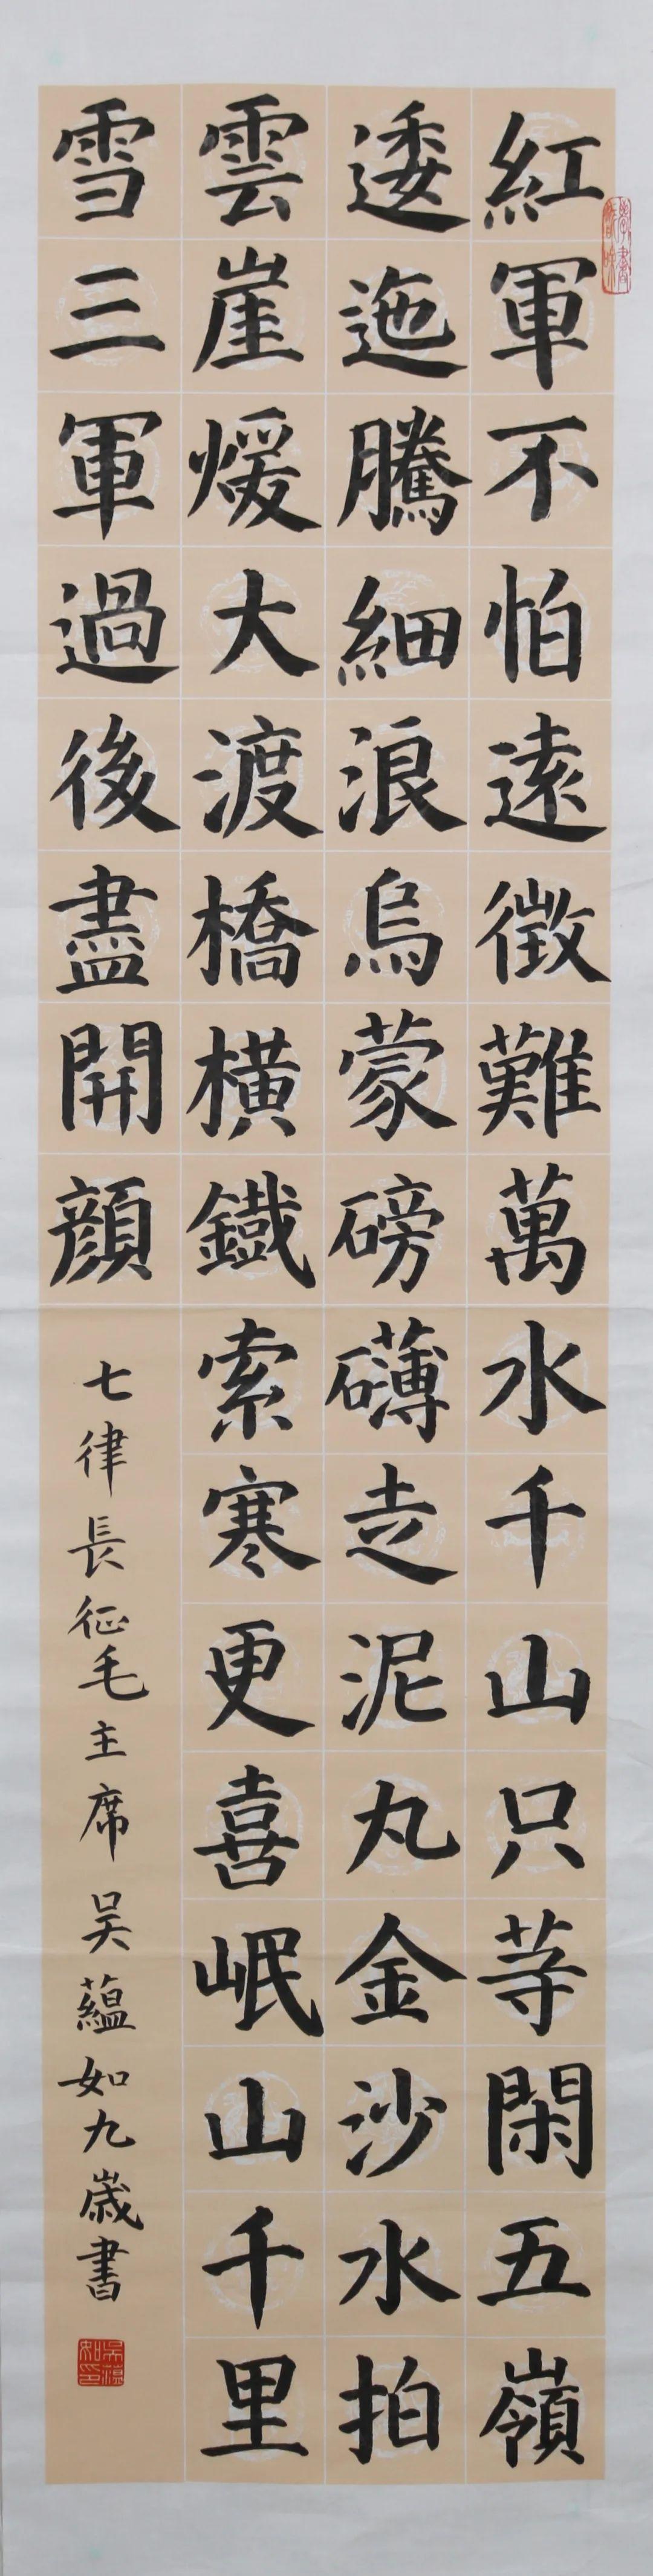 紅軍不怕遠徵難萬水千山只等閑五嶺
逶迤騰細浪烏蒙磅礴走泥丸金沙水拍
雲崖煖大渡橋橫鐵索寒更喜岷山千里
雪三軍過後盡開顏
七律長征毛主席 吴蘊如九歲書